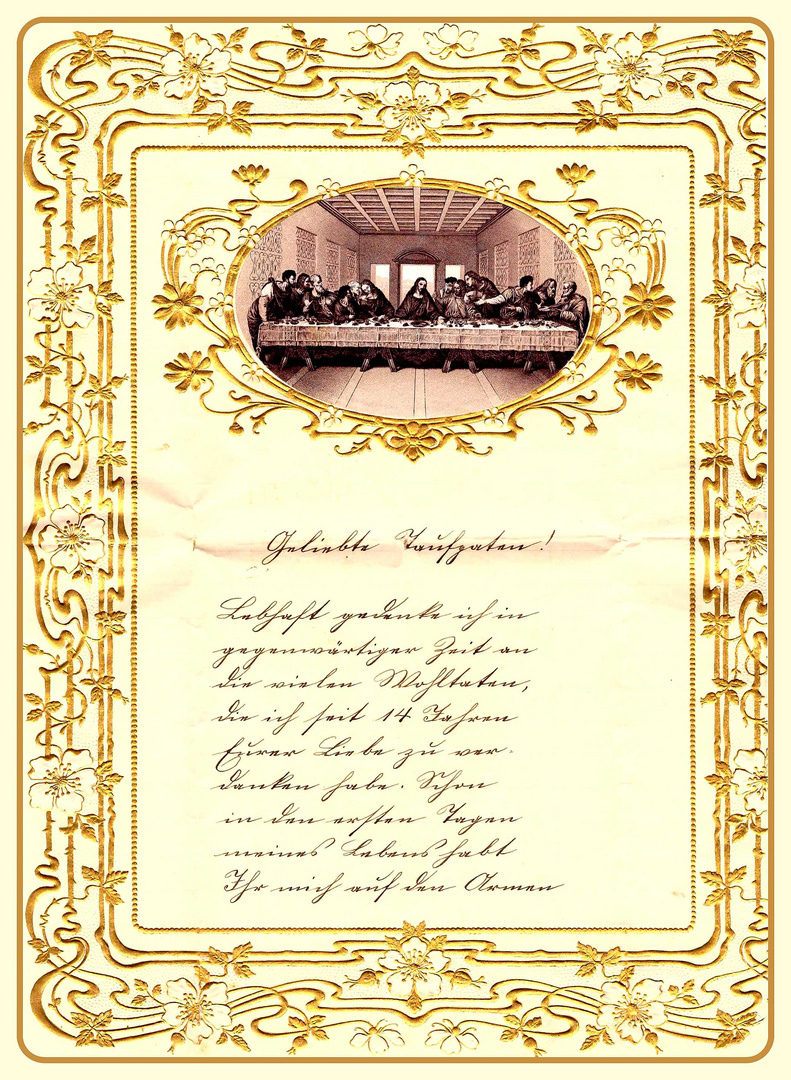 Geliebte Taufpaten!
Lebhaft gedenke ich in
gegenwärtiger Zeit an
die vielen Wohltaten,
die ich seit 14 Jahren
Eurer Liebe zu ver-
danken habe. Schon
in den ersten Tagen
meines Lebens habt
Ihr mich auf den Armen